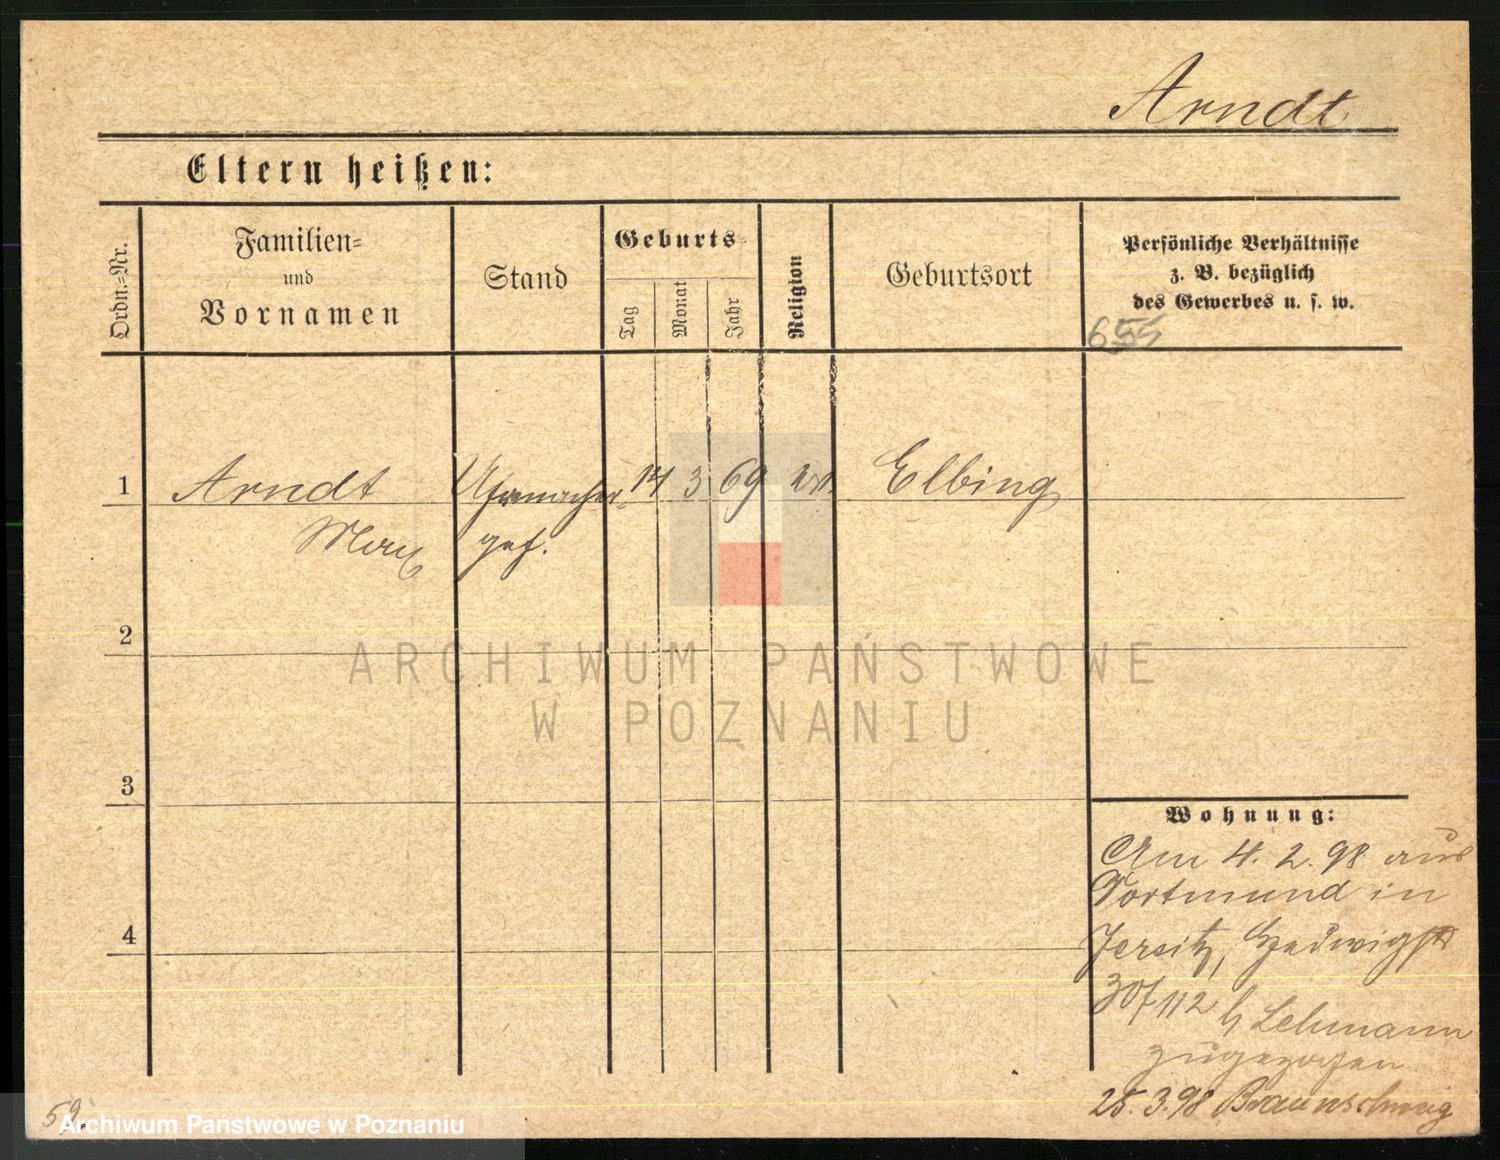 Arndt
Eltern heißen:
Ordn.-Nr.
Familien-
und
Vornamen
Stand
Geburts-
Tag
Monat
Jahr
Religion
Geburtsort
Persönliche Verhältnisse
z. B. bezüglich
des Gewerbes u. s. w.
655
1
Arndt
Max
Uhrmacher
geh.
14
3
69
ev.
Elbing
2
ARCHIWUM PAŃSTWOWE
W POZNANIU
3
4
Wohnung:
Am 4. 2. 98 aus
Dortmund in
Jersitz, Hedwigstr
112 b Lehmann
zugezogen
25. 3. 98 Braunschweig
59.
Archiwum Państwowe w Poznaniu